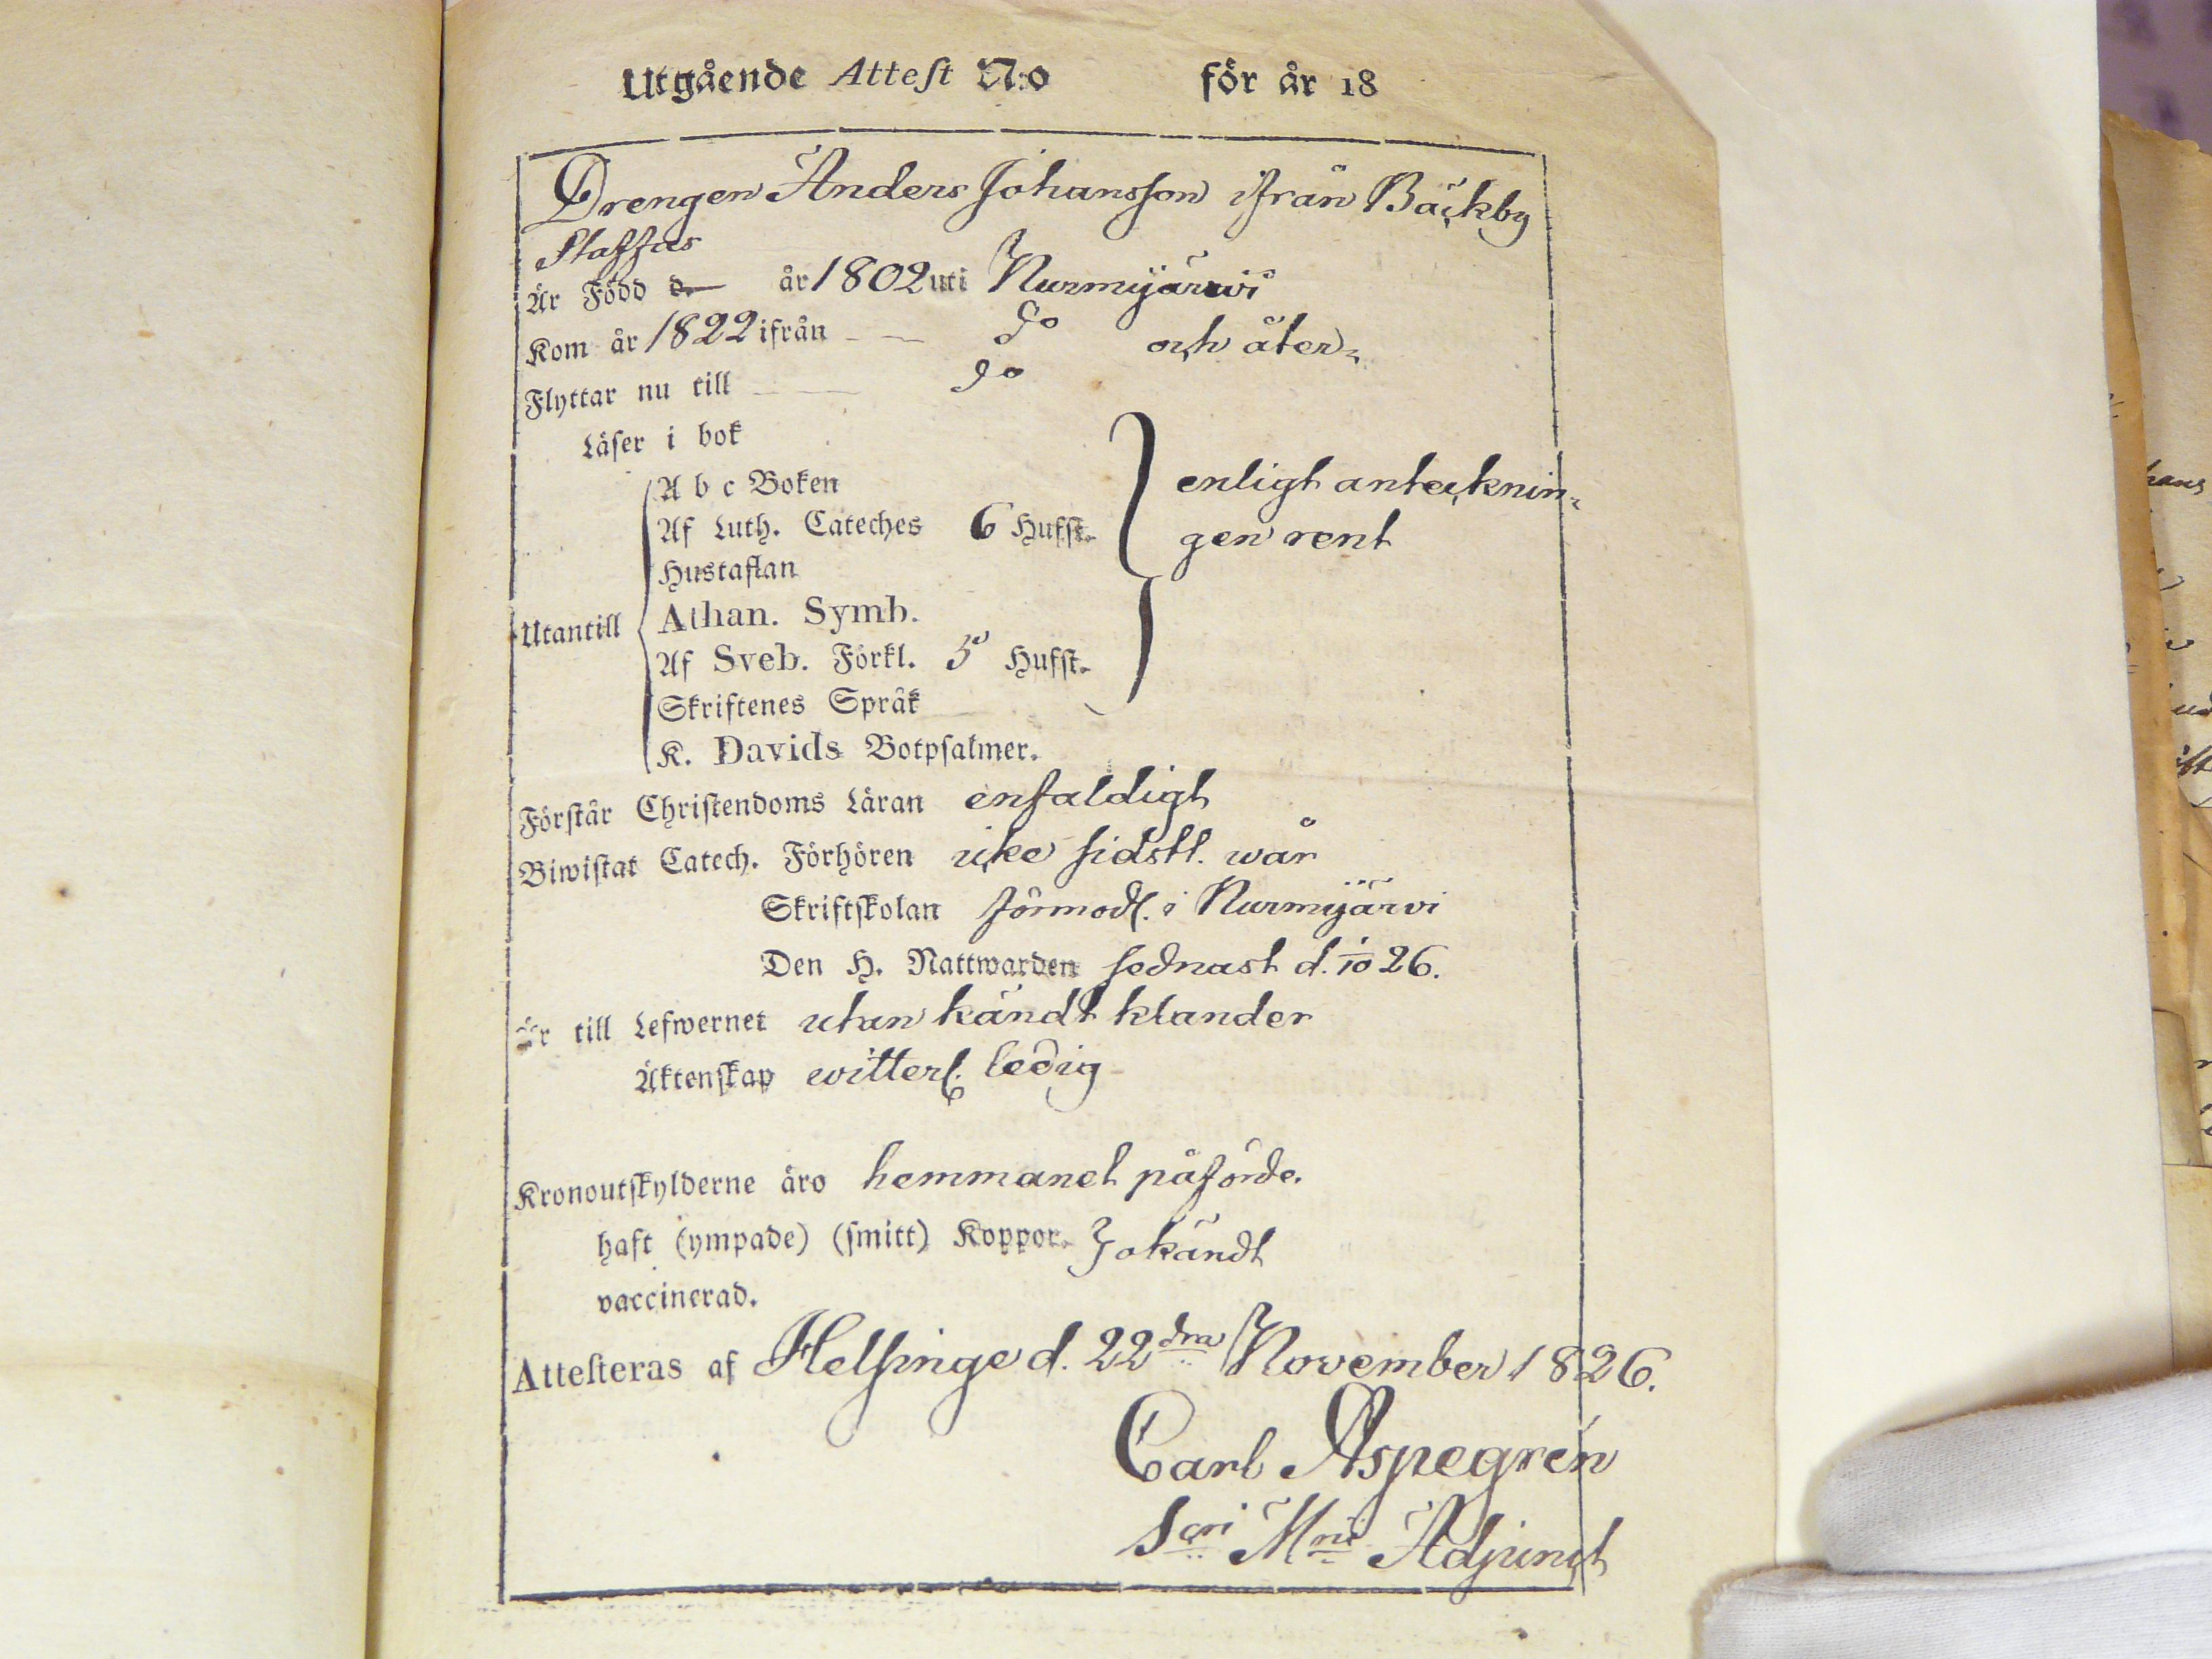 Utgående Attest N:o för år 18
Drengen Anders Johansson ifrån Bäckby
Staffas
Är Född d. år 1802 uti Nurmijärvi
Kom år 1822 ifrån do och åter-
Flyttar nu till do
Läser i bok
A b c Boken
enligt antecknin-
Af Luth. Cateches 6 Hufst.
gen rent
Hustaflan
Utantill
Athan. Symb.
Af Sveb. Förkl. 5 Hufst.
Skriftenes Språk
K. Davids Botpsalmer.
Förstår Christendoms Läran enfaldigt
Biwistat Catech. Förhören icke sidstl. wår
Skriftskolan förmodl. i Nurmijärvi
Den H. Nattwarden sednast d. 1/10 26.
Är till Lefwernet utan kändt klander
Äktenskap witterl. ledig
Kronoutskylderne äro hemmanet påförde.
haft (ympade) (smitt) Koppor. } okändt
vaccinerad.
Attesteras af Helsinge d. 22dra November 1826.
Carl Aspegrén
Sacri Mrii Adjunct